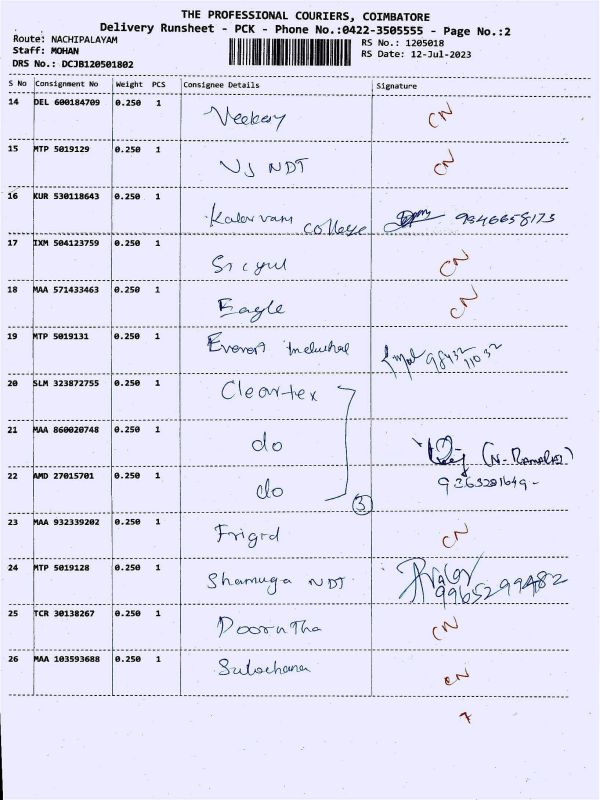 THE PROFESSIONAL COURIERS, COIMBATORE
Delivery Runsheet - PCK - Phone No.:0422-3505555 - Page No.:2
Route: NACHIPALAYAM RS No.: 1205018
Staff: MOHAN RS Date: 12-Jul-2023
DRS No.: DCJB120501802
S No Consignment No Weight PCS Consignee Details Signature
14 DEL 600184709 0.250 1 Veekay CN
15 MTP 5019129 0.250 1 VJ NDT CN
16 KUR 530118643 0.250 1 College 9346658173
17 IXM 504123759 0.250 1 CN
18 MAA 571433463 0.250 1 Eagle CN
19 MTP 5019131 0.250 1 98432 11032
20 SLM 323872755 0.250 1 Cleartex
21 MAA 860020748 0.250 1 do
22 AMD 27015701 0.250 1 do 3
23 MAA 932339202 0.250 1 Frigrd CN
24 MTP 5019128 0.250 1 Shamuga NDT 9965299482
25 TCR 30138267 0.250 1 CN
26 MAA 103593688 0.250 1 Sulochana CN
7